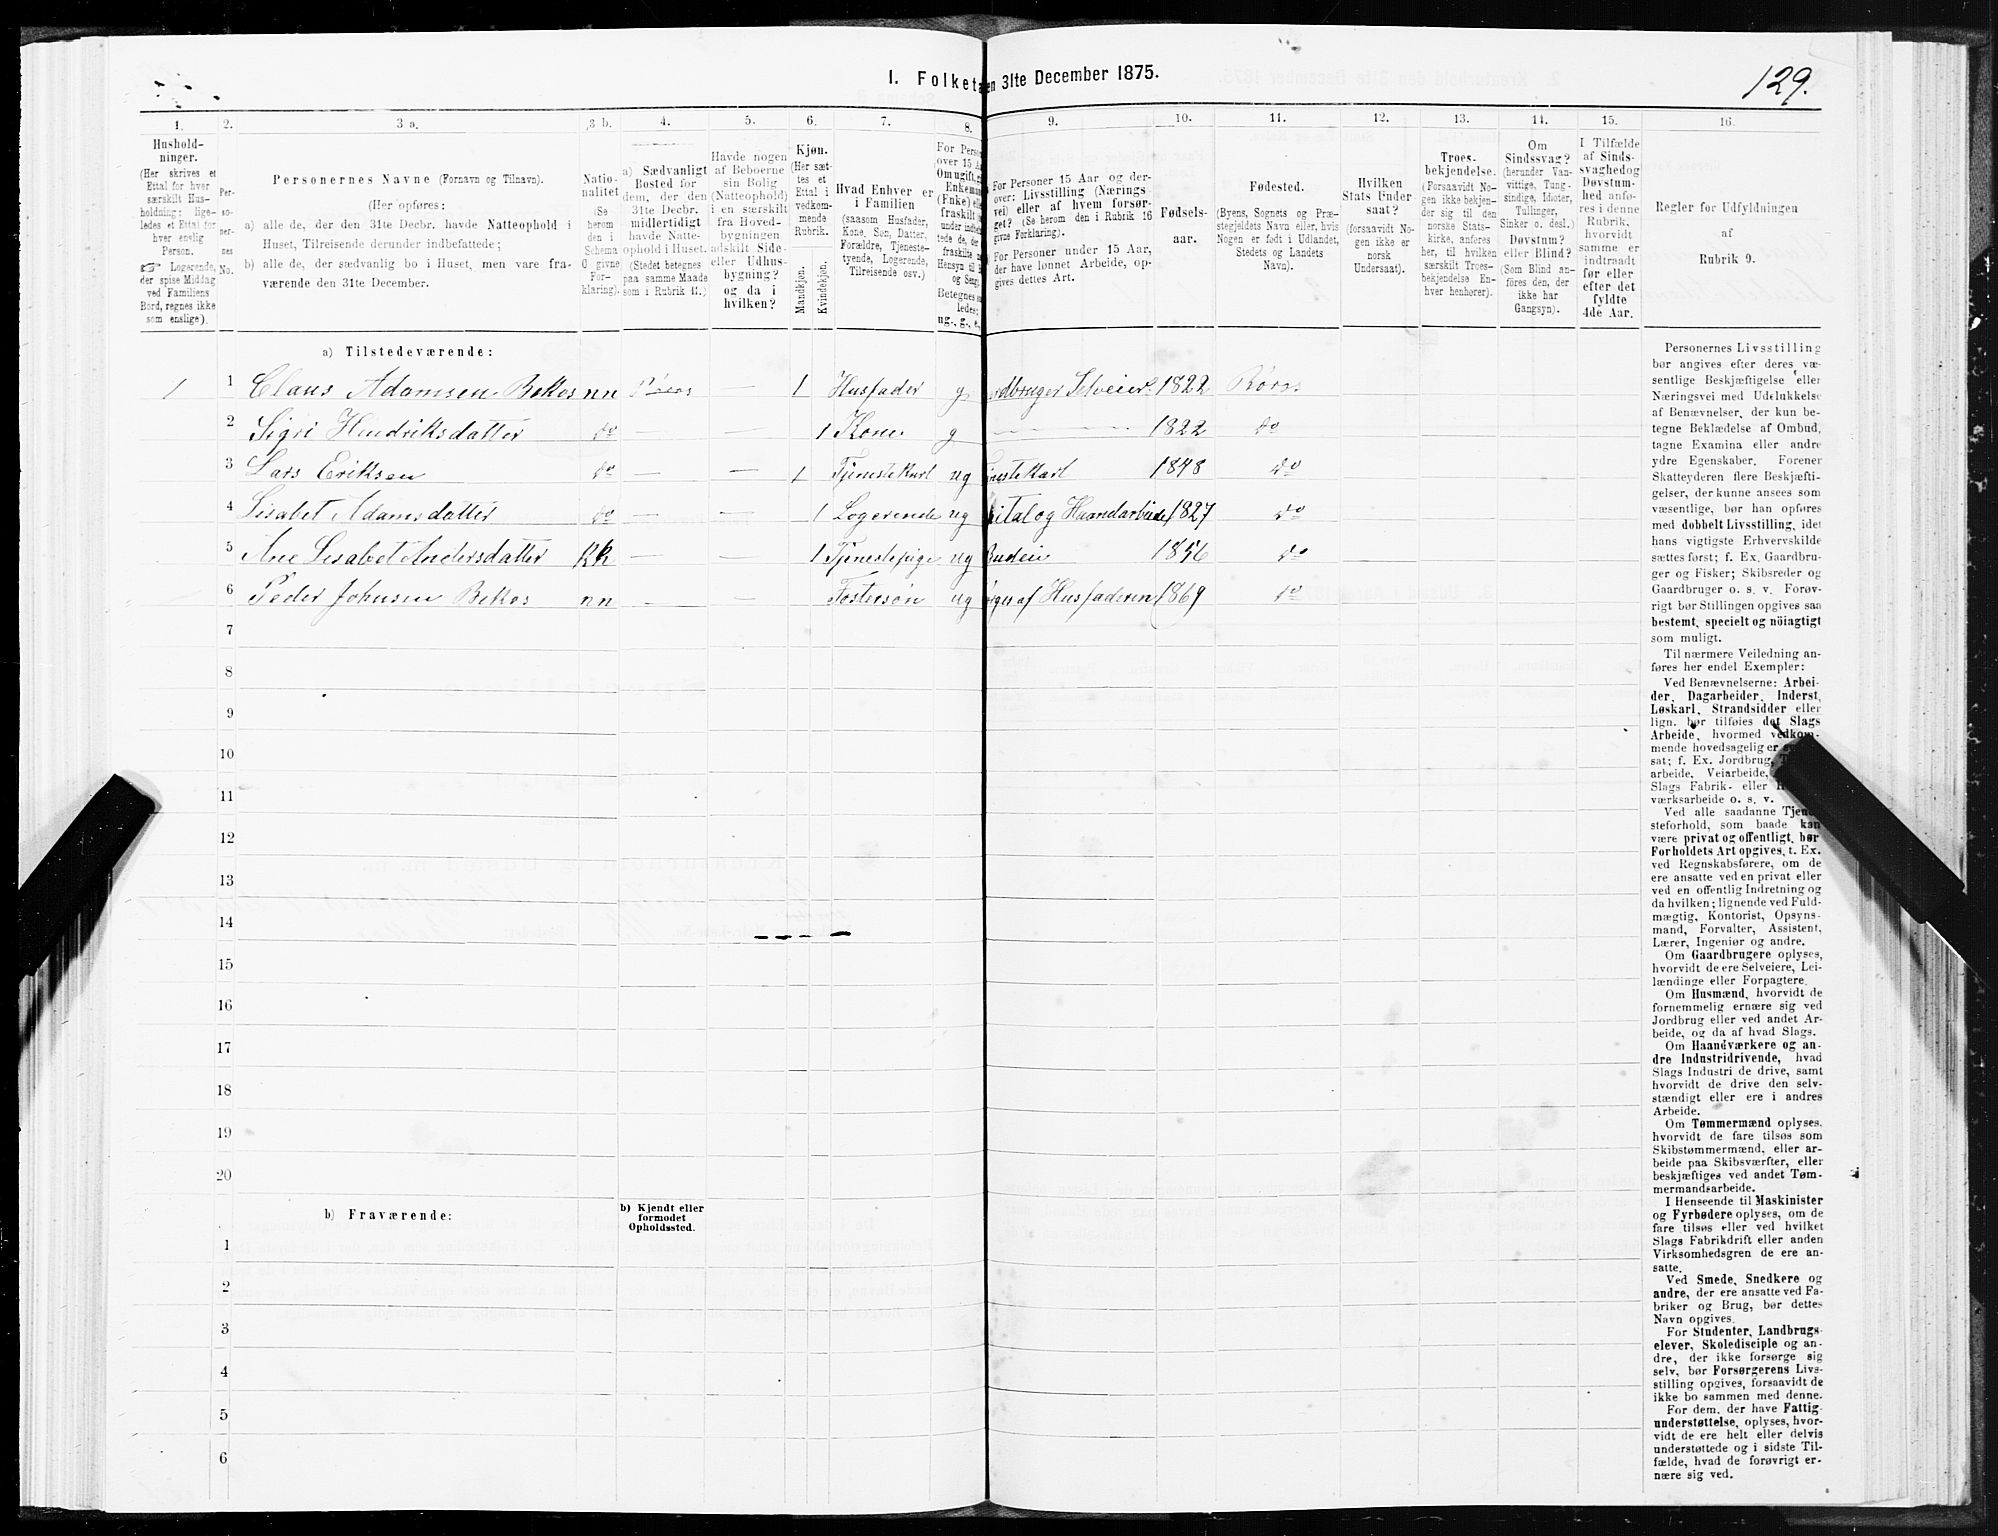 129.
I. Folketa en 31te December 1875.
1. 2. 3 a. 3 b. 4. 5. 6. 7. 8. 9. 10. 11. 12. 13. 14. 15. 16.
Hushold-
ninger.
(Her skrives et
Ettal for hver
særskilt Hus-
holdning; lige-
ledes et Ettal for
hver enslig
Person.
☞ Logerende,
der spise Middag
ved Familiens
Bord, regnes ikke
som enslige).
Per-
so-
ner-
nes
No.
Personernes Navne (Fornavn og Tilnavn).
(Her opføres:
a) alle de, der den 31te Decbr. havde Natteophold i
Huset, Tilreisende derunder indbefattede;
b) alle de, der sædvanlig bo i Huset, men vare fra-
værende den 31te December.
Natio-
nalitet
(Se
herom
den i
Schema
O givne
For-
klaring).
a) Sædvanligt
Bosted for
dem, der den
31te Decbr.
midlertidigt
havde Natte-
ophold i Huset.
(Stedet betegnes
paa samme Maade
som i Rubrik 11.)
Havde nogen
af Beboerne
sin Bolig
(Natteophold)
i en særskilt
fra Hoved-
bygningen
adskilt Side-
eller Udhus-
bygning?
og da i
hvilken?
Kjøn.
(Her sæt-
tes et
Ettal i
vedkom-
mende
Rubrik.
Mandkjøn.
Kvindekjøn.
Hvad Enhver er
i Familien
(saasom Husfader,
Kone, Søn, Datter,
Forældre, Tjeneste-
tyende, Logerende,
Tilreisende osv.)
For Pers
over 15 A
Om ugift, g
Enkema
(Enke) el
fraskilt
under indbe
tede de, der
fraskilte
Hensyn til
og Seng
Betegnes s
ledes:
ug., g., e.
For Personer 15 Aar og der-
over: Livsstilling (Nærings
vei) eller af hvem forsør-
get? (Se herom den i Rubrik 16
givne Forklaring).
For Personer under 15 Aar,
der have lønnet Arbeide, op-
gives dettes Art.
Fødsels-
aar.
Fødested.
(Byens, Sognets og Præ-
stegjeldets Navn eller, hvis
Nogen er født i Udlandet,
Stedets og Landets
Navn).
Hvilken
Stats Under
saat?
(forsaavidt No-
gen ikke er
norsk
Undersaat).
Troes-
bekjendelse.
(Forsaavidt No-
gen ikke bekjen-
der sig til den
norske Stats-
kirke, anføres
her, til hvilken
særskilt Troes-
bekjendelse En-
hver henhører).
Om
Sindssvag?
(herunder Van-
vittige, Tung-
sindige, Idioter,
Tullinger,
Sinker o. desl.)
Døvstum?
eller Blind?
(Som Blind an-
føres den, der
ikke har
Gangsyn).
I Tilfælde
af Sinds-
svaghed og
Døvstum-
hed anfø-
res i denne
Rubrik,
hvorvidt
samme er
indtraadt
før eller
efter det
fyldte
4de Aar.
Regler for Udfyldningen
af
Rubrik 9.
a) Tilstedeværende:
1 1 Claus Adamsen Bekos nn Røraas — 1 Husfader g rdbruger Selveier 1822 Røros
2 Sigri Hendriksdatter do — — 1 Kone g 1822 do
3 Lars Eriksen do — — 1 Tjenestekarl ug jenestekarl 1848 do
4 Lisabet Adamsdatter do — — 1 Logerende ug pital og Haandarbeide 1827 do
5 Ane Lisabet Andersdatter KK — — 1 Tjenestepige ug Budeie 1856 do
6 Peder Johnsen Bekos nn — — Fostersøn ug ørges af Husfaderen 1869 do
7
8
9
10
11
12
13
14
15
16
17
18
19
20
b) Fraværende:
b) Kjendt eller
formodet
Opholdssted.
1
2
3
4
5
6
Personernes Livsstilling
bør angives efter deres væ-
sentlige Beskjæftigelse eller
Næringsvei med Udelukkelse
af Benævnelser, der kun be-
tegne Beklædelse af Ombud,
tagne Examina eller andre
ydre Egenskaber. Forener
Skatteyderen flere Beskjæfti-
gelser, der kunne ansees som
væsentlige, bør han opføres
med dobbelt Livsstilling, idet
hans vigtigste Erhvervskilde
sættes først; f. Ex. Gaardbru-
ger og Fisker; Skibsreder og
Gaardbruger o. s. v. Forøv-
rigt bør Stillingen opgives saa
bestemt, specielt og nöiagtigt
som muligt.
Til nærmere Veiledning an-
føres her endel Exempler:
Ved Benævnelserne: Arbei-
der, Dagarbeider, Inderst,
Løskarl, Strandsidder eller
lign. bør tilføies det Slags
Arbeide, hvormed vedkom-
mende hovedsagelig er
sat; f. Ex. Jordbrug,
arbeide, Veiarbeide,
Slags Fabrik- eller
værksarbeide o. s. v.
Ved alle saadanne Tjene-
steforhold, som baade kan
være privat og offentligt, bør
Forholdets Art opgives, t. Ex.
ved Regnskabsførere, om de
ere ansatte ved en privat eller
ved en offentlig Indretning og
da hvilken; lignende ved Fuld-
mægtig, Kontorist, Opsyns-
mand, Forvalter, Assistent,
Lærer, Ingeniør og andre.
Om Gaardbrugere oplyses,
hvorvidt de ere Selveiere, Lei-
lændinge eller Forpagtere.
Om Husmænd, hvorvidt de
fornemmelig ernære sig ved
Jordbrug eller ved andet Ar-
beide, og da af hvad Slags.
Om Haandværkere og an-
dre Industridrivende, hvad
Slags Industri de drive, samt
hvorvidt de drive den selv-
stændigt eller ere i andres
Arbeide.
Om Tømmermænd oplyses,
hvorvidt de fare tilsøs som
Skibstømmermænd, eller ar-
beide paa Skibsværfter, eller
beskjæftiges ved andet Tøm-
mermandsarbeide.
I Henseende til Maskinister
og Fyrbødere oplyses, om de
fare tilsøs eller ved hvilket
Slags Fabrikdrift eller anden
Virksomhedsgren de ere an-
satte.
Ved Smede, Snedkere og
andre, der ere ansatte ved Fa-
briker og Brug, bør dettes
Navn opgives.
For Studenter, Landbrugs-
elever, Skoledisciple og an-
dre, der ikke forsørge sig
selv, bør Forsørgerens Livs-
stilling opgives, forsaavidt de
ikke bo sammen med denne.
For dem, der have Fattig-
understøttelse, oplyses, hvor-
vidt de ere helt eller delvis
understøttede og i sidste Til-
fælde, hvad de forøvrigt er-
nære sig ved.